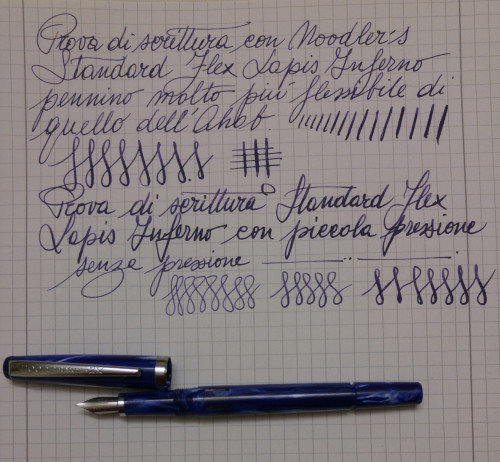 Prova di scrittura con Noodler's
Standard Flex Lapis Inferno
pennino molto più flessibile di
quello dell'Ahab.
Prova di scrittura Standard Flex
Lapis Inferno con piccola pressione
senza pressione